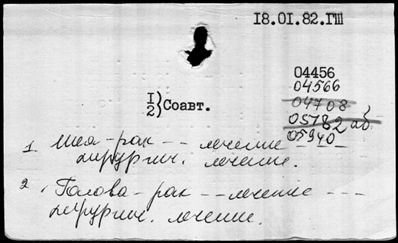 18.01.82.ГШ
04456
04566
04708
05782 аб.
05940
1)
2) Соавт.
1 Шея-рак -- лечение ---
хирургич. лечение.
2. Голова-рак -- лечение ---
хирургич. лечение.